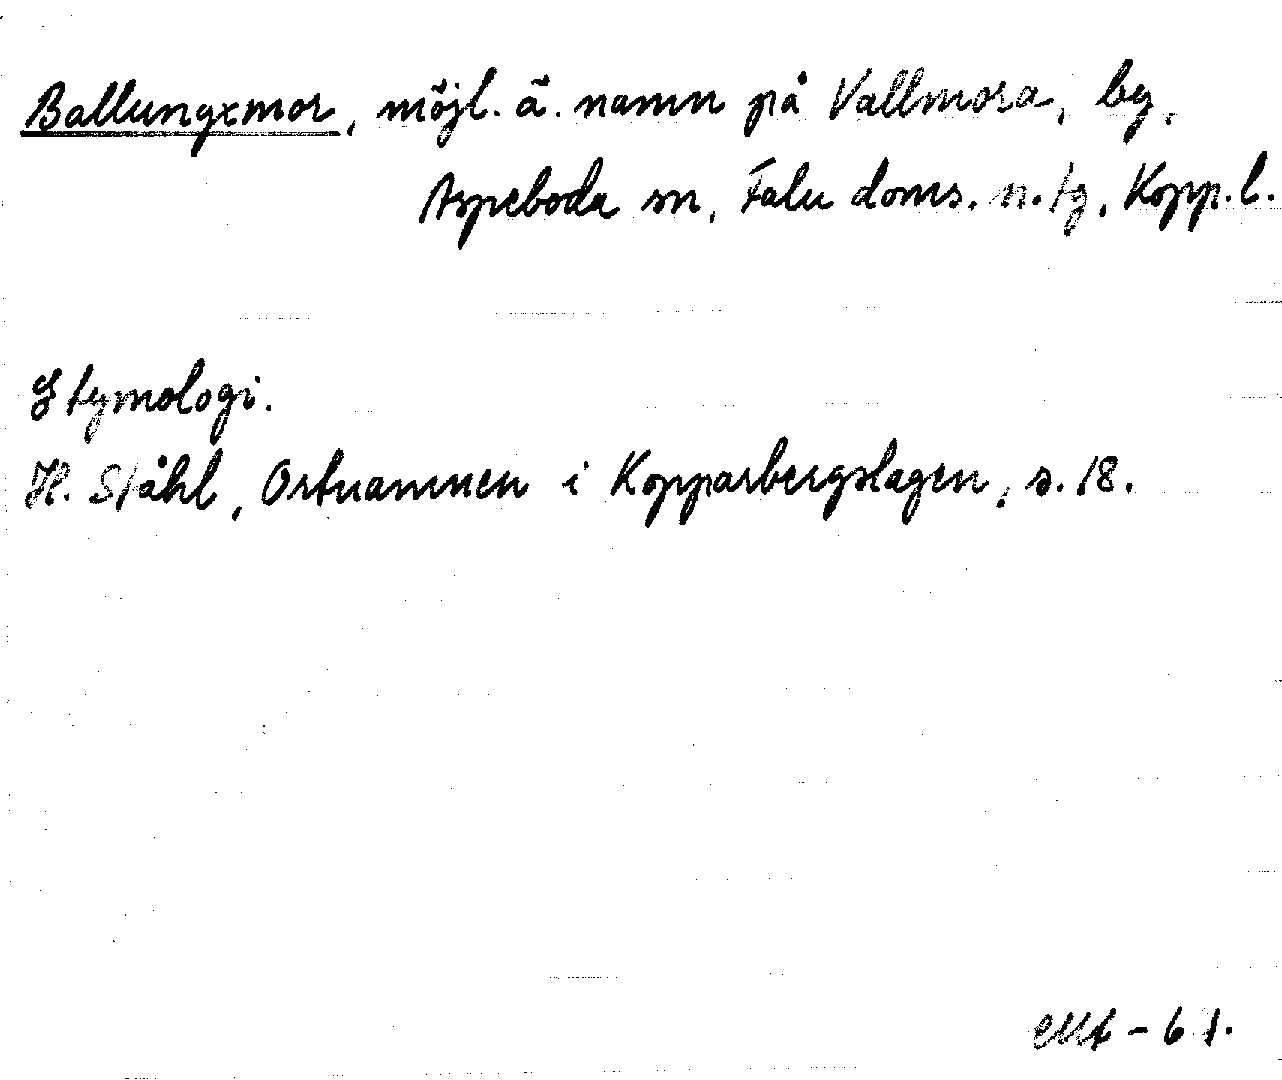 Ballungxmor, möjl. ä. namn på Vallmora, by,
Aspeboda sn, Falu doms. n. tg, Kopp. l.
Etymologi.
H. Ståhl, Ortnamnen i Kopparbergslagen, s. 18.
- 61.